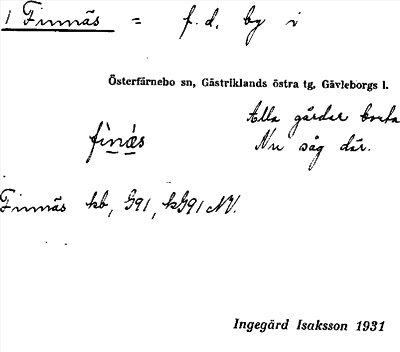 1 Finnäs = f. d. by i
Österfärnebo sn, Gästriklands östra tg, Gävleborgs l.
Alla gårdar borta
Nu såg där.
fìnæ̀s
Finnäs kb, G91, kG91 NV.
Ingegärd Isaksson 1931